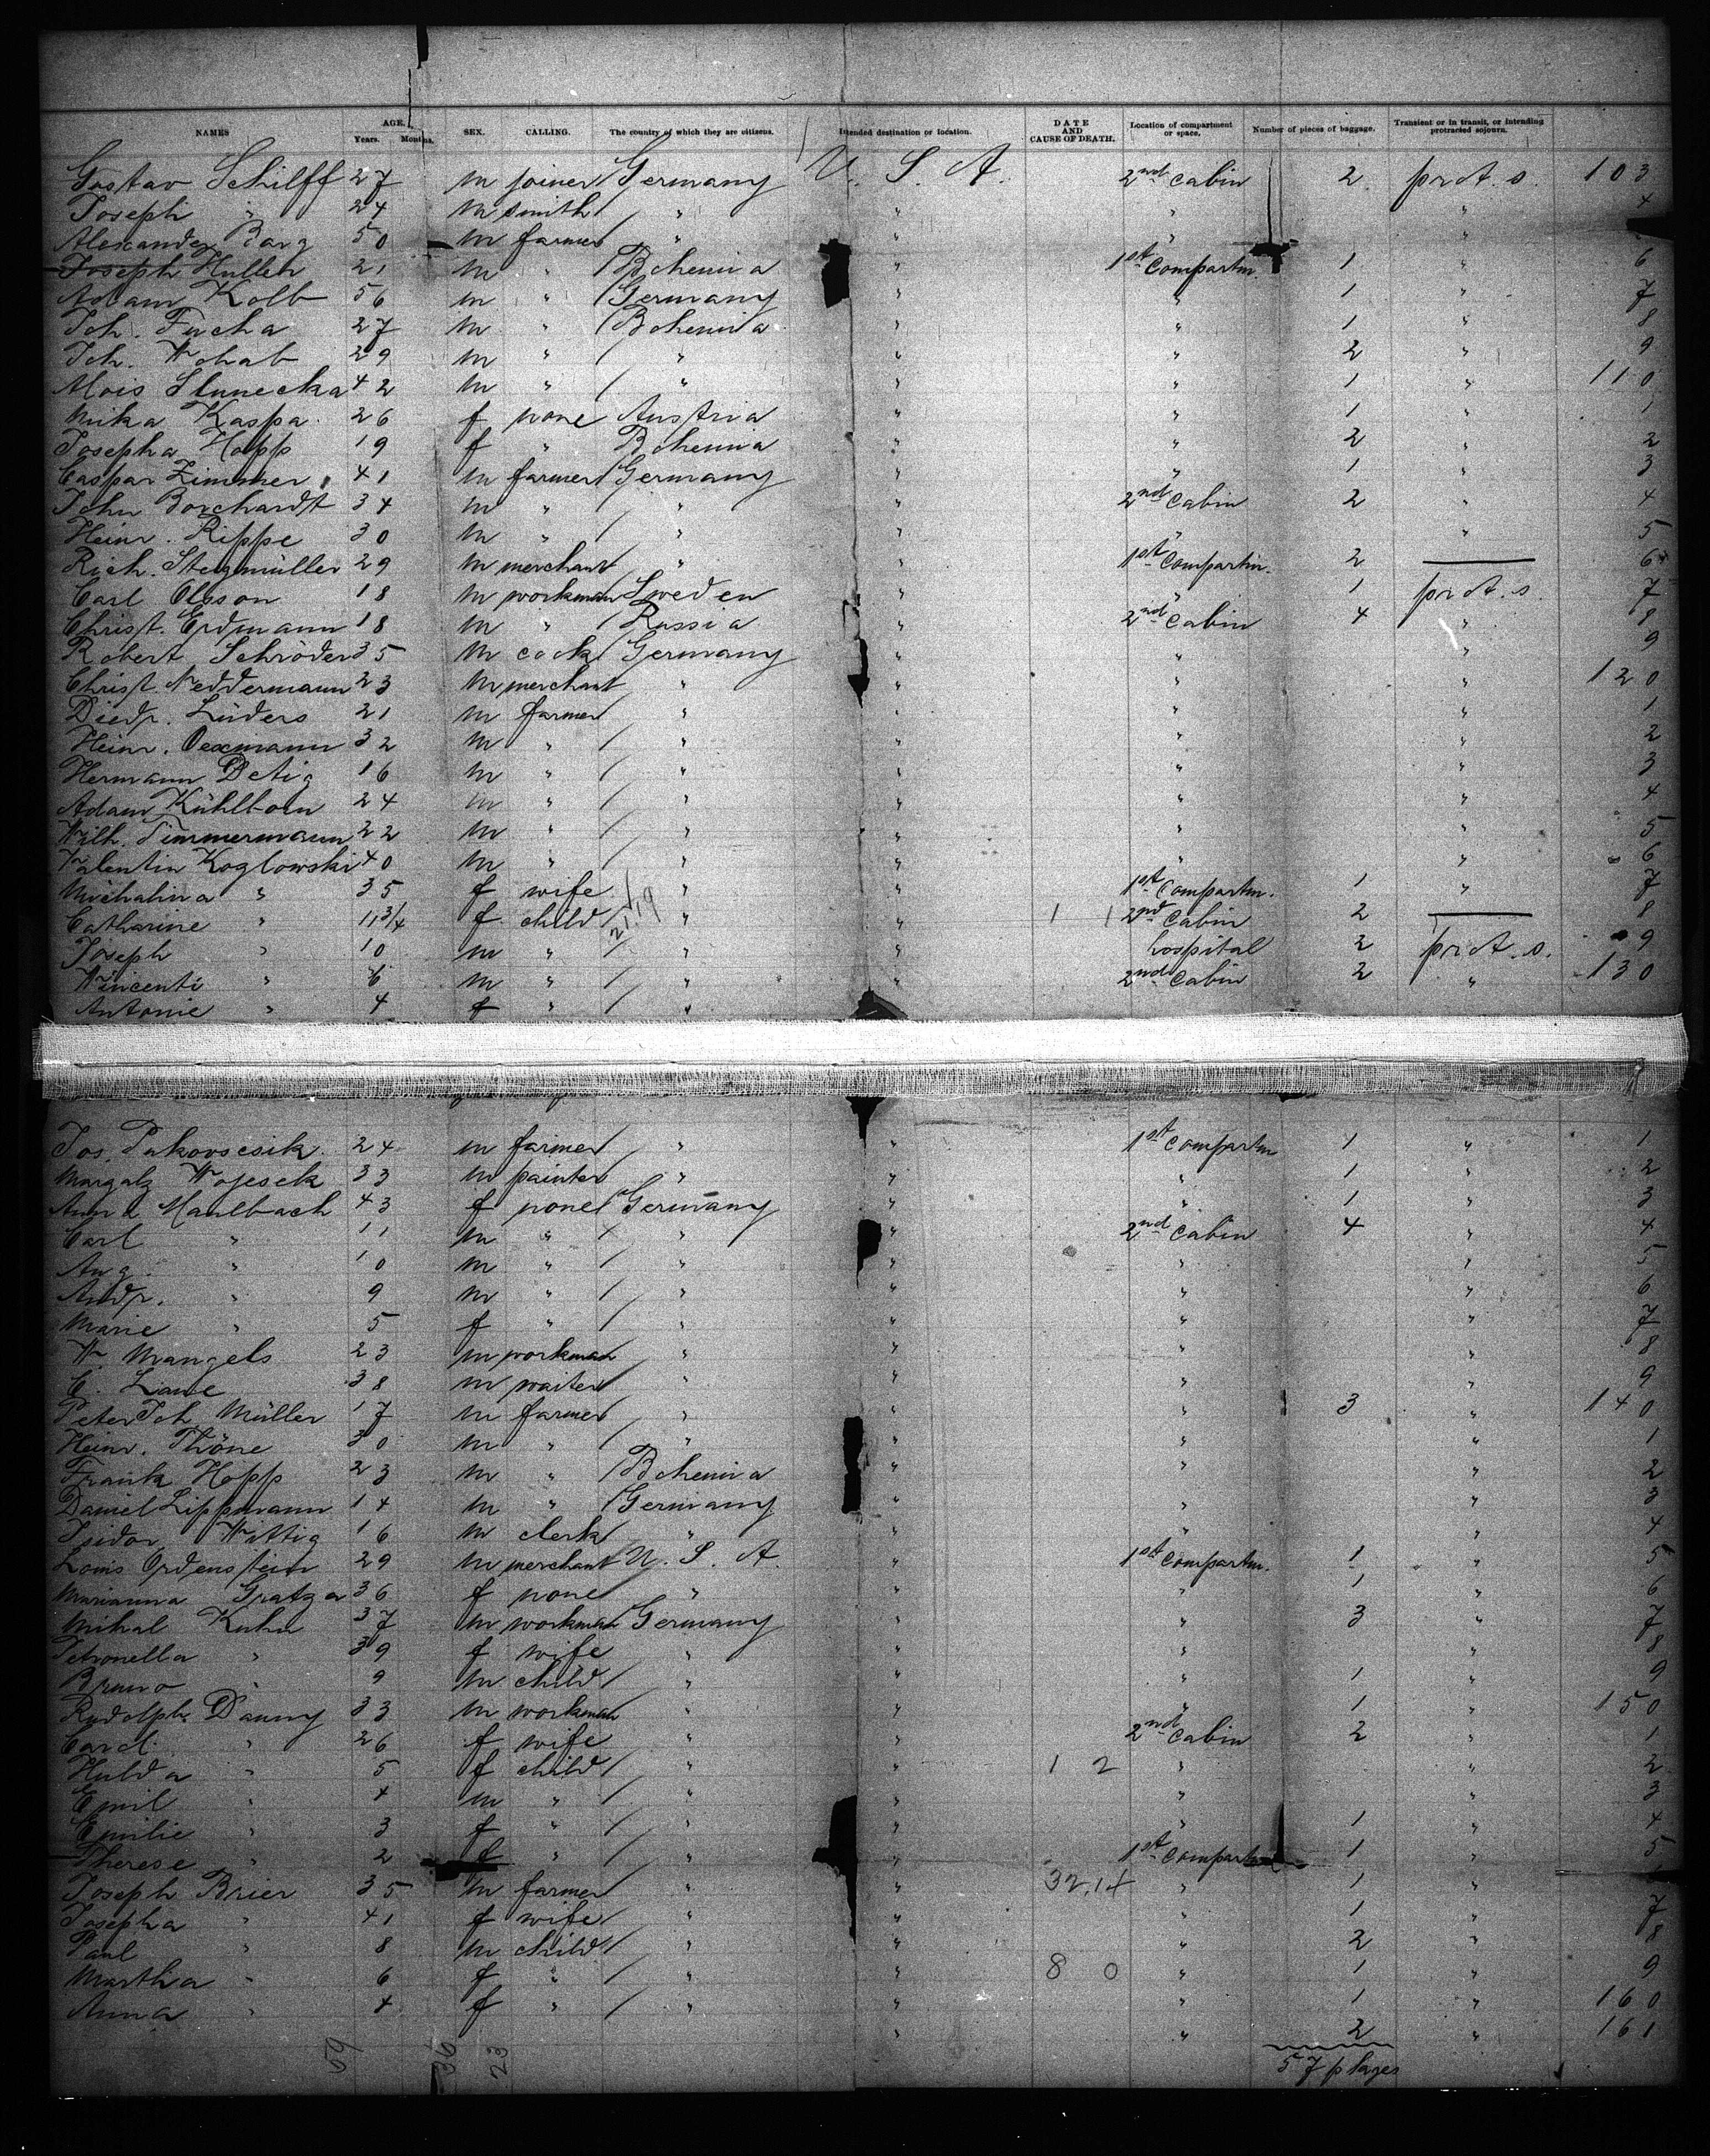 NAMES AGE. Years. Months. SEX. CALLING. The country of which they are citizens. Intended destination or location. DATE AND CAUSE OF DEATH. Location of compartment or space. Number of pieces of baggage. Transient or in transit, or intending protracted sojourn.
Gustav Schilff 27 m joiner Germany U. S. A. 2nd cabin 2 prot. s. 103
Joseph " 24 m smith " " " " 4
Alexander Barg 50 m farmer " " " "
Joseph Huller 21 m " Bohemia " 1st Compartm. 1 " 6
Adam Kolb 56 m " Germany " " 1 " 7
Joh. Fucha 27 m " Bohemia " " 1 " 8
Joh. Wohab 29 m " " " " 2 " 9
Alois Slunecka 42 m " " " " 1 " 110
Mika Kaspa 26 f none Austria " " 1 " 1
Josepha Hopp 19 f " Bohemia " " 2 " 2
Caspar Zimmer 41 m farmer Germany " " 1 " 3
John Borchardt 34 m " " " 2nd cabin 2 " 4
Heinr. Rippe 30 m " " " " " 5
Rich. Stegmüller 29 m merchant " " 1st Compartm. 2 — 6
Carl Olsson 18 m workman Sweden " " 1 prot. s. 7
Christ. Erdmann 18 m " Russia " 2nd cabin 4 " 8
Robert Schröder 35 m cook Germany " " " 9
Christ. Neddermann 23 m merchant " " " " 120
Diedr. Lüders 21 m farmer " " " " 1
Heinr. Oexmann 32 m " " " " " 2
Hermann Detig 16 m " " " " " 3
Adam Kühlborn 24 m " " " " " 4
Wilh. Timmermann 22 m " " " " " 5
Valentin Koglowski 40 m " " " " " 6
Michalina " 35 f wife " " 1st Compartm. 1 " 7
Catharine " 11 3/4 f child " " 1 1 2nd cabin 2 — 8
Joseph " 10 m " " " hospital 2 prot. s. 9
Wincenti " 6 m " " " 2nd cabin 2 " 130
Antonie " 4 f " "
Jos. Pakovscsik 24 m farmer " " 1st Compartm 1 " 1
Margalz Wojesek 33 m painter " " " 1 " 2
Anna Maulbach 43 f none Germany " " 1 " 3
Carl " 11 m " " " 2nd cabin 4 " 4
Aug. " 10 m " " " " " 5
Andr. " 9 m " " " " " 6
Marie " 5 f " " " " " 7
W. Mangels 23 m workman " " " " 8
C. Laue 38 m waiter " " " " 9
Peter Joh Müller 17 m farmer " " " 3 " 140
Heinr. Thöne 30 m " " " " " 1
Frank Hopp 23 m " Bohemia " " " 2
Daniel Lippmann 14 m " Germany " " " 3
Isidor Wittig 16 m clerk " " " " 4
Louis Ordenstein 29 m merchant U. S. A. " 1st Compartm. 1 " 5
Marianna Gratza 36 f none " " " 1 " 6
Mihal Kuhn 37 m workman Germany " " 3 " 7
Petronella " 39 f wife " " " " 8
Bruno " 9 m child " " " 1 " 9
Rudolph Danny 33 m workman " " " 1 " 150
Carol. " 26 f wife " " 2nd cabin 2 " 1
Hulda " 5 f child " " 1 2 " " 2
Emil " 4 m " " " " " 3
Emilie " 3 f " " " " 1 " 4
Therese " 2 f " " " 1st Compartm 1 " 5
Joseph Brier 35 m farmer " " 32,14 " 1 "
Josepha " 41 f wife " " " 1 " 7
Paul " 8 m child " " " 2 " 8
Martha " 6 f " " " 8 0 " 1 " 9
Anna " 4 f " " " " 1 " 160
" " 2 " 161
59 36 23
57